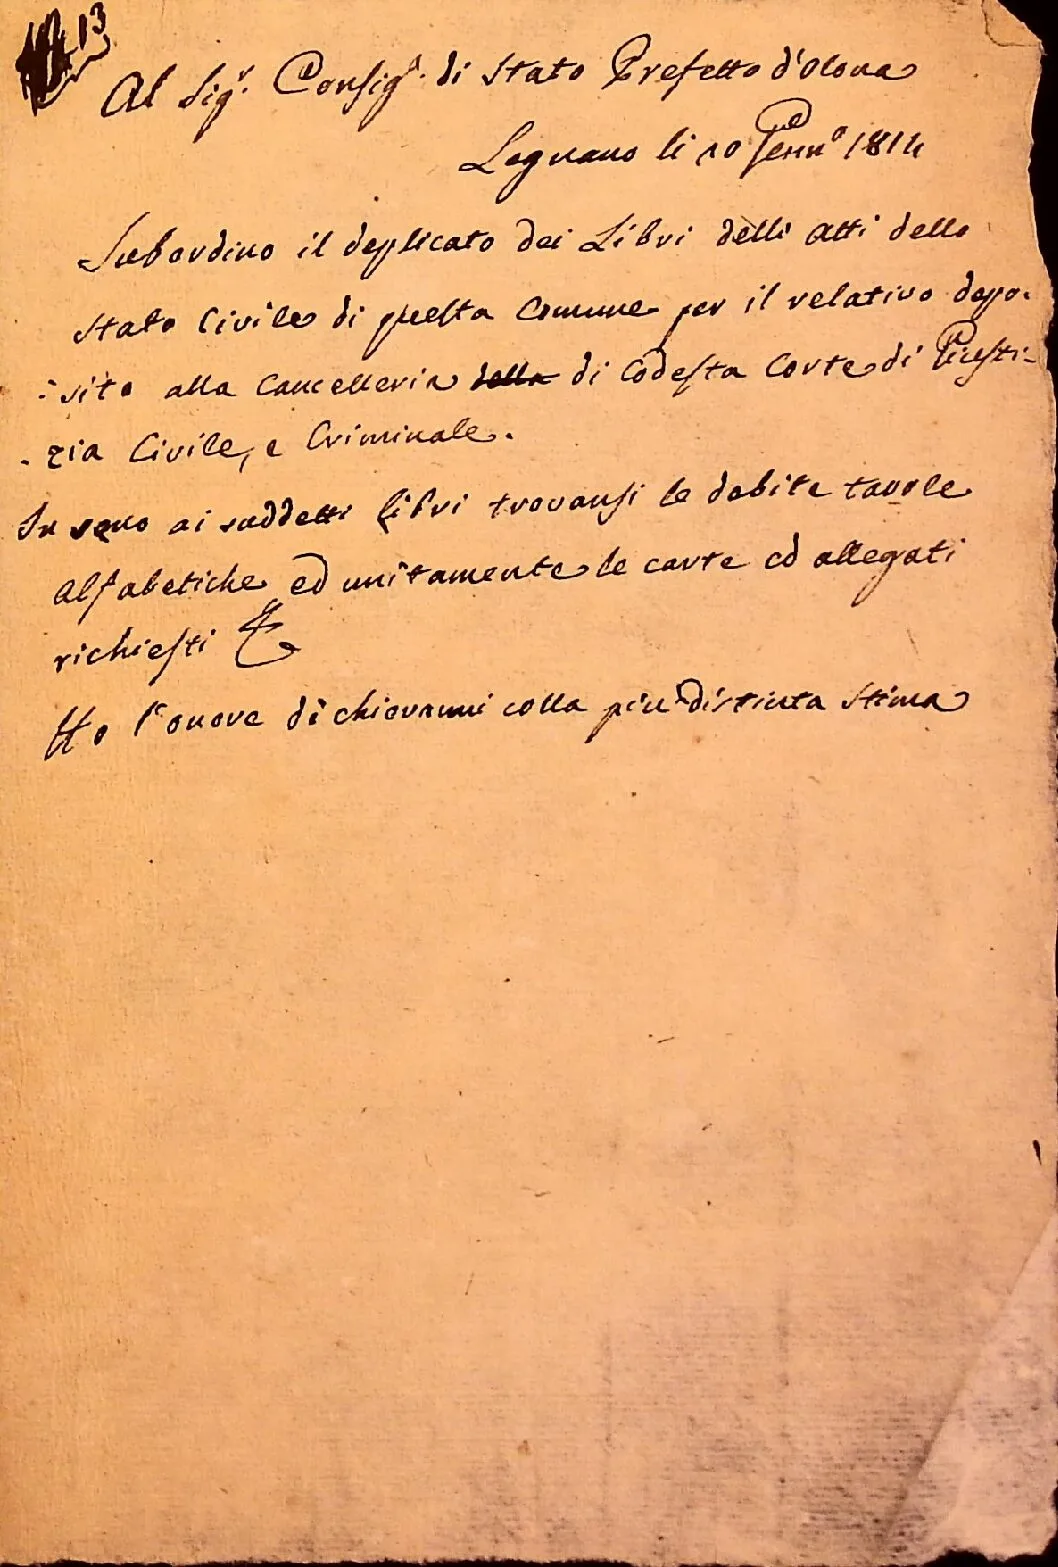 13
Al Sig.r Consig.r di Stato Prefetto d'Olona
Legnano li 10 Genn.o 1814
Subordino il deplicato dei Libri delli Atti dello
Stato Civile di questa Comune per il relativo depo-
-sito alla Cancelleria della di Codesta Corte di Giusti-
-zia Civile, e Criminale.
In seno ai suddetti libri trovansi le debite tavole
Alfabetiche ed unitamente le carte ed allegati
richiesti
Ho l'onore di chiovanni colla più distinta stima